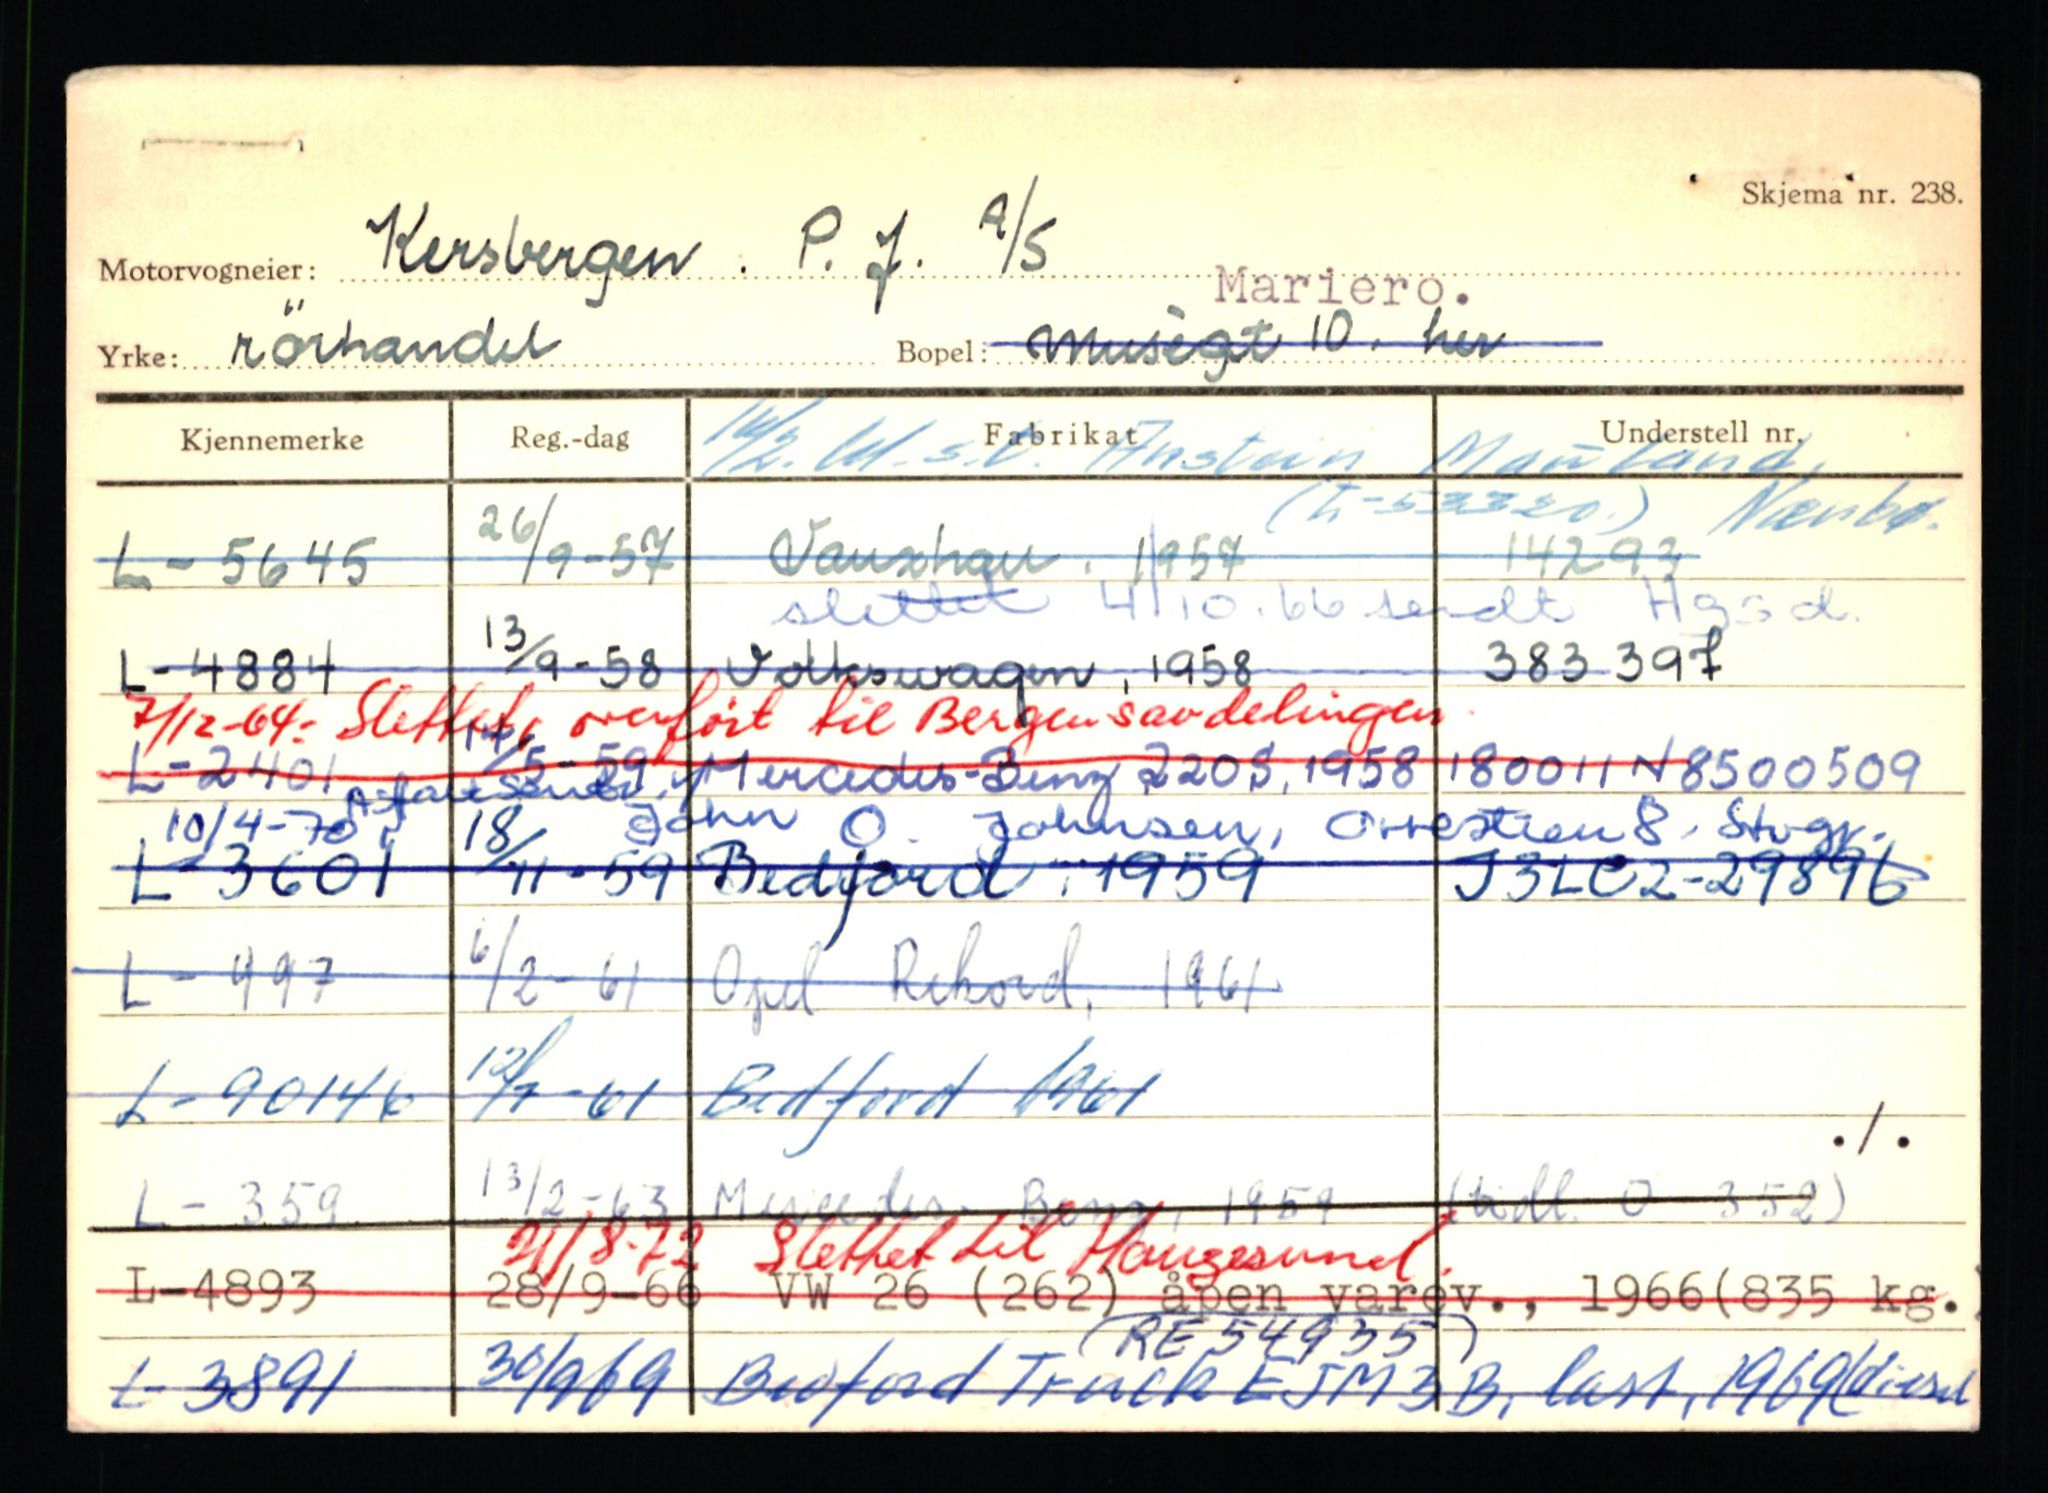 Skjema nr. 238.
Motorvogneier: Kersbergen. P. J. A/S
Mariero.
Yrke: rörhandel Bopel: Musègt 10. her
Kjennemerke Reg.-dag Fabrikat Understell nr.
14/2. Anstein Mauland,
Nærbø.
L-5645 26/9-57 Vauxhau. 1957 14293
slettet 4/10.66 sendt Hgsd.
L-4884 13/9-58 Volkswagen, 1958 383 397
7/12-64: Slettet, overført til Bergensavdelingen.
L-2401 14/5-59 Mercedes-Benz 220S, 1958 180011 N 8500509
10/4-70 John O. Johnsen, Orrestien 8. Stvgr.
L-3601 18/11-59 Bedford. 1959 J3LC2-29896
L-497 6/2-61 Opel Rekord, 1961
L-90146 12/7-61 Bedford 1961
./.
L-359 13/2-63 Mercedes Benz, 1959 (tidl. O 352)
21/8-72 Slettet til Haugesund.
L-4893 28/9-66 VW 26 (262) åpen varev., 1966(835 kg.)
(RE 54935)
L-3891 30/969 Bedford Truck EJM3B, last, 1969(diesel